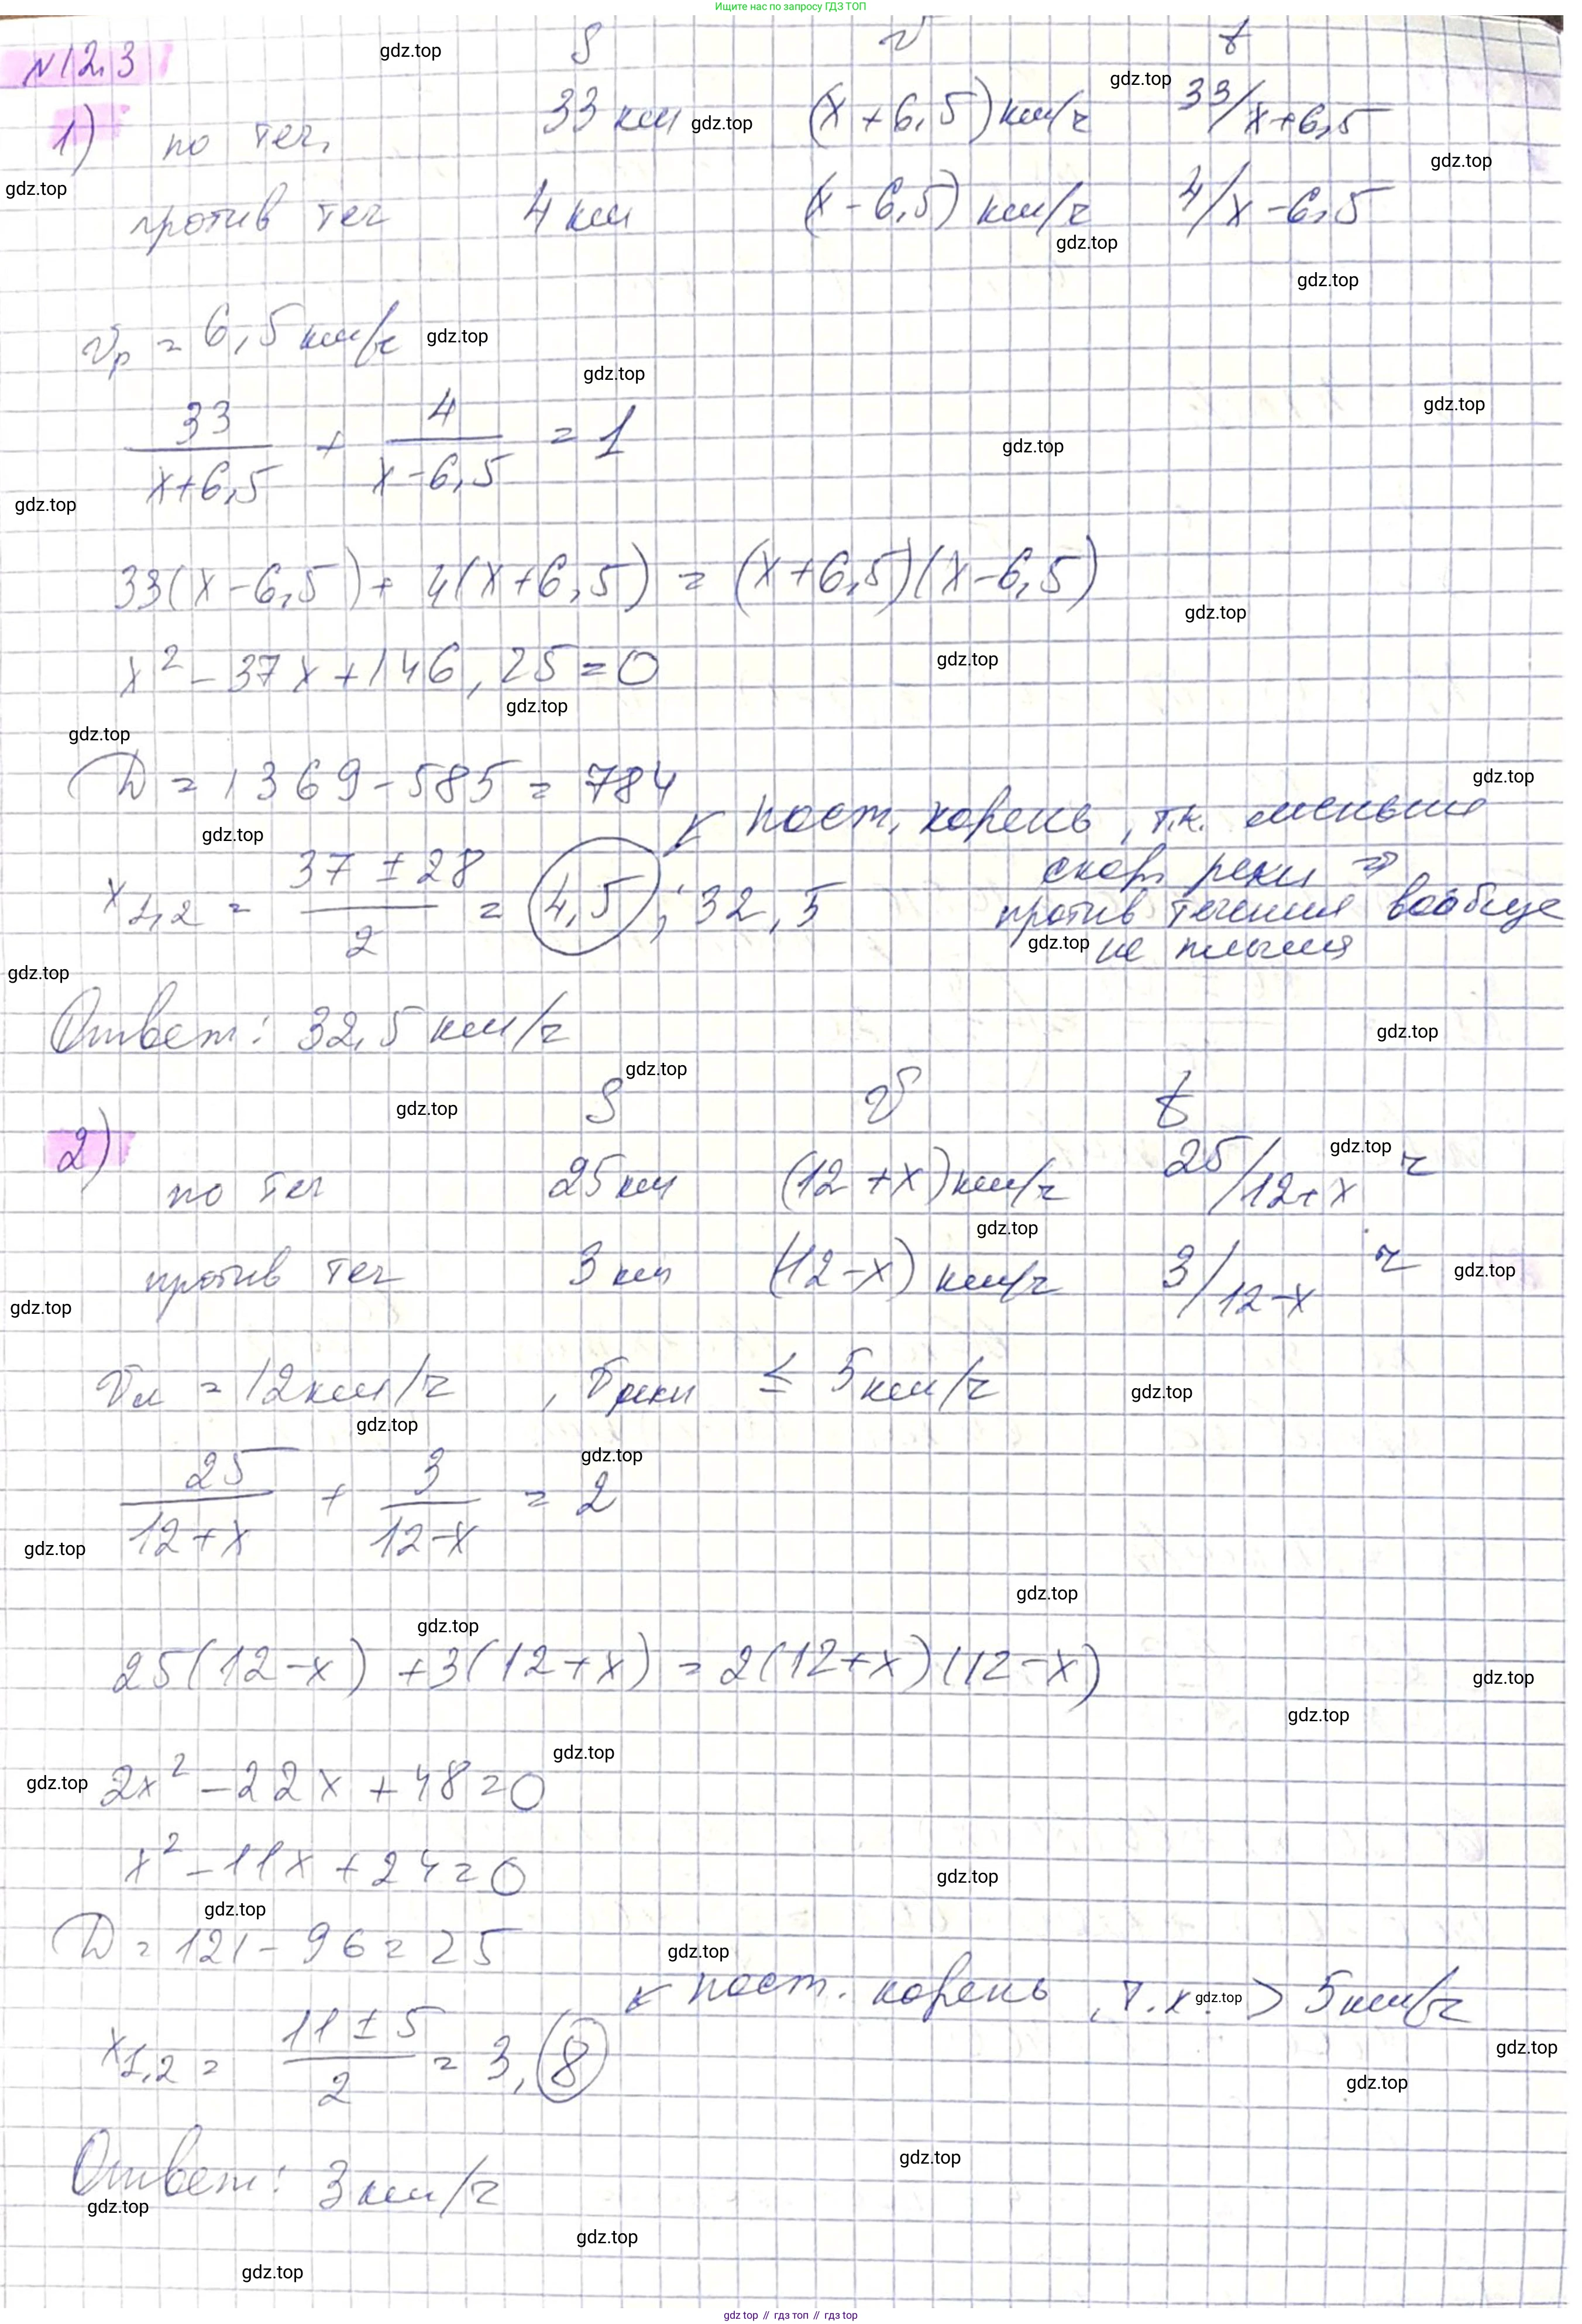 Ищите нас по запросу ГДЗ ТОП
N12.3
S v t
1) по теч. 33 км (x + 6,5) км/ч 33/x+6,5
против теч 4 км (x - 6,5) км/ч 4/x-6,5
Vр = 6,5 км/ч
33/x+6,5 + 4/x-6,5 = 1
33(x-6,5) + 4(x+6,5) = (x+6,5)(x-6,5)
x² - 37x + 146,25 = 0
D = 1369 - 585 = 784
x1,2 = 37 ± 28/2 = 4,5; 32,5
пост. корень, т.к. меньше
скор. реки ⇒
против течения вообще
не плыли
Ответ: 32,5 км/ч
S v t
2) по теч 25 км (12 + x) км/ч 25/12+x ч
против теч 3 км (12-x) км/ч 3/12-x ч
Vл = 12 км/ч, Vреки ≤ 5 км/ч
25/12+x + 3/12-x = 2
25(12-x) + 3(12+x) = 2(12+x)(12-x)
2x² - 22x + 48 = 0
x² - 11x + 24 = 0
D = 121 - 96 = 25
пост. корень, т.к. > 5 км/ч
x1,2 = 11 ± 5/2 = 3, 8
Ответ: 3 км/ч
gdz.top
gdz top // гдз топ // гдз top